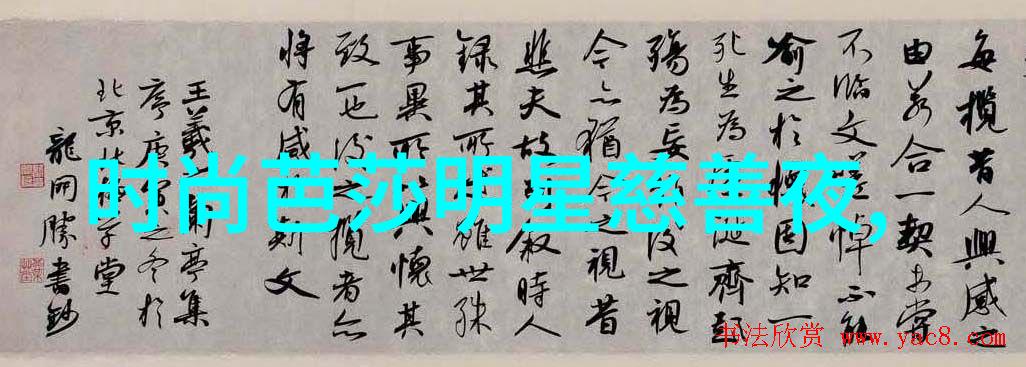 每攬昔人興感之
由若合一契未嘗
不臨文嗟悼不能
喻之於懷固知一
死生為虛誕齊彭
殤為妄作後之視
今亦猶今之視昔
悲夫故列叙時人
錄其所述雖世殊
事異所以興懷其
致一也後之攬者亦
將有感於斯文
王羲之蘭亭集
序庚寅之冬於
北京堂
龍開勝書鈔
时尚芭莎明星慈善夜,
书法欣赏 www.yac8.com